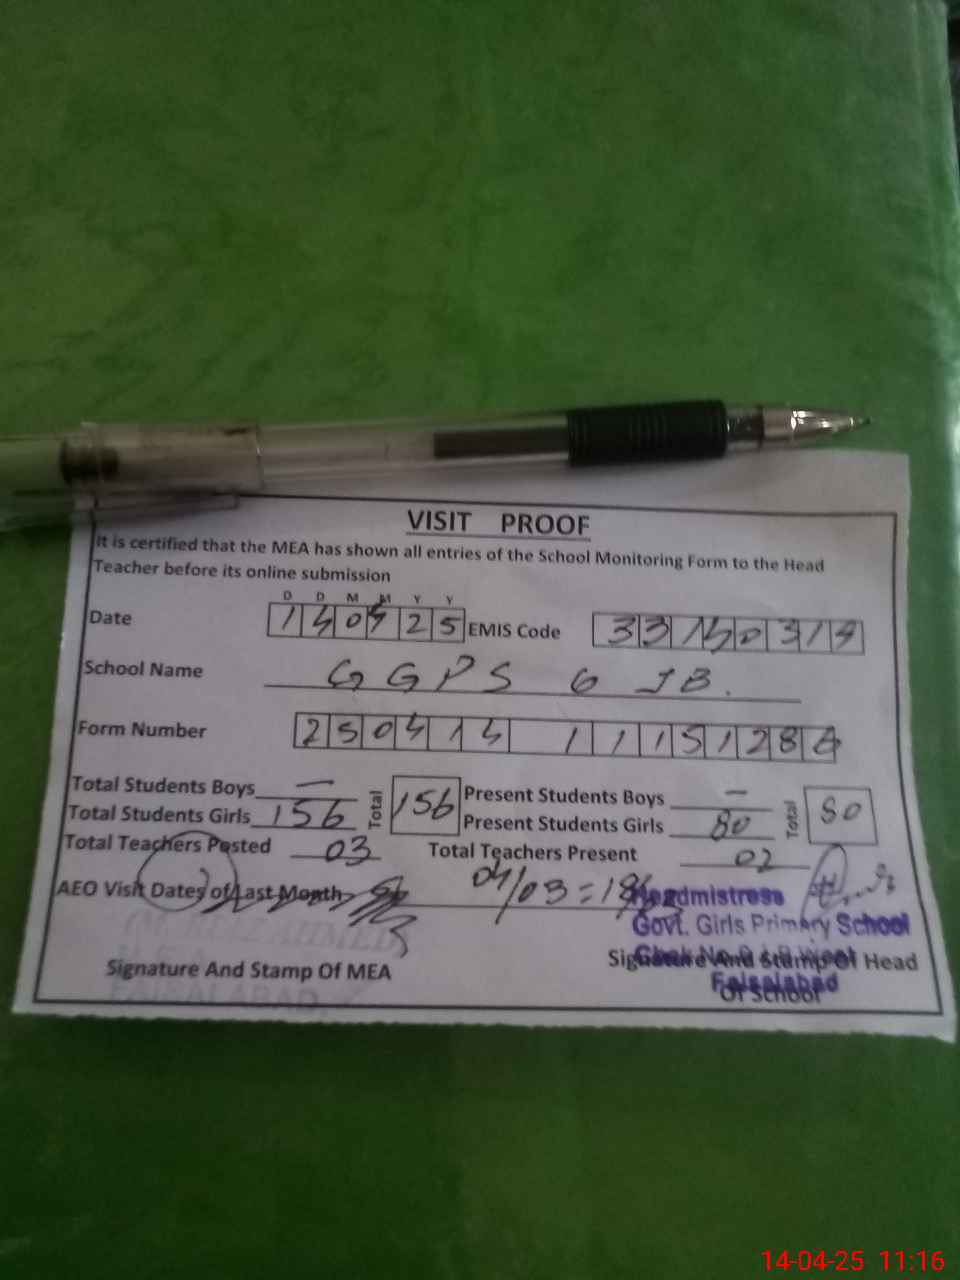 VISIT PROOF
It is certified that the MEA has shown all entries of the School Monitoring Form to the Head
Teacher before its online submission
D D M M Y Y
Date 140425 EMIS Code 33140314
School Name GGPS 6 JB.
Form Number 250414 1115128
Total Students Boys — Total 156 Present Students Boys — Total 80
Total Students Girls 156 Present Students Girls 80
Total Teachers Posted 03 Total Teachers Present 02
AEO Visit Dates of Last Month 04/03 = 18
Headmistress
Govt. Girls Primary School
Faisalabad
Signature And Stamp Of MEA Signature And Stamp Of Head
Of School
FAISALABAD
14-04-25 11:16